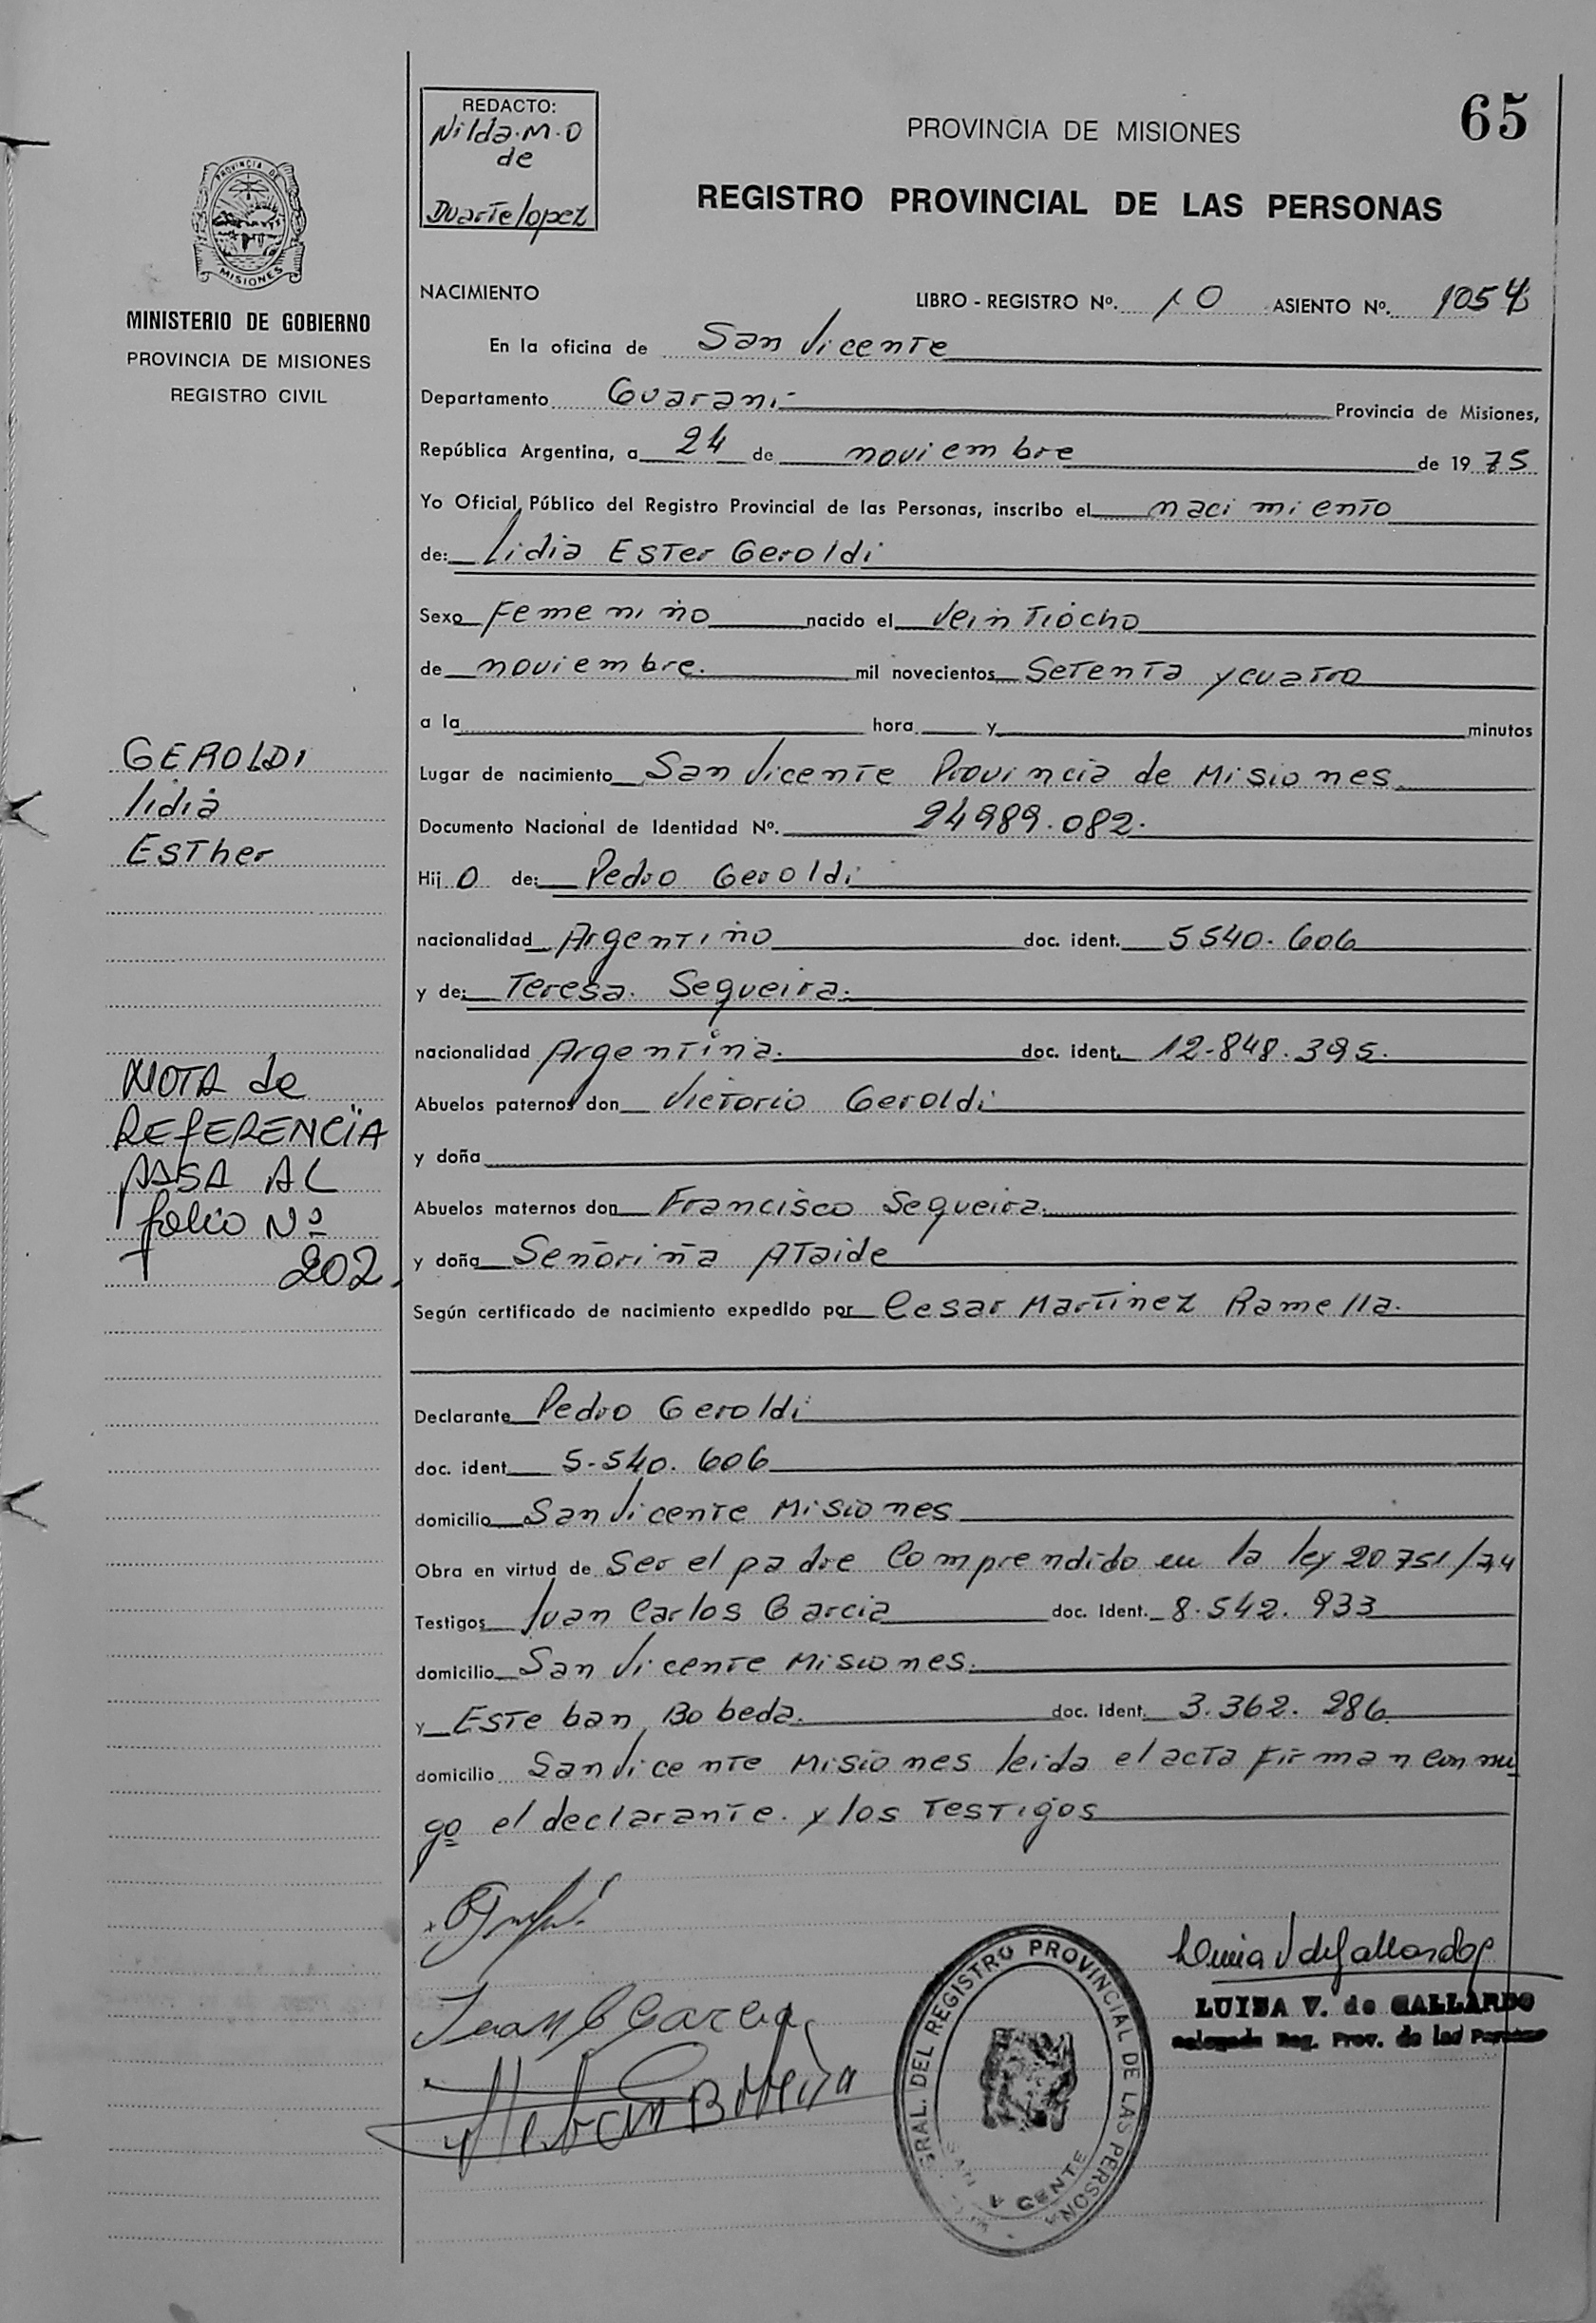 65
REDACTO:
Nilda.M.O
de
Duarte lopez
PROVINCIA DE MISIONES
REGISTRO PROVINCIAL DE LAS PERSONAS
PROVINCIA DE
MISIONES
MINISTERIO DE GOBIERNO
PROVINCIA DE MISIONES
REGISTRO CIVIL
NACIMIENTO LIBRO - REGISTRO Nº. 10 ASIENTO Nº. 1054
En la oficina de San Vicente
Departamento Guarani Provincia de Misiones,
República Argentina, a 24 de noviembre de 1975
Yo Oficial Público del Registro Provincial de las Personas, inscribo el nacimiento
de: Lidia Ester Geroldi
Sexo Femenino nacido el Veintiocho
de noviembre. mil novecientos Setenta y cuatro
a la hora y minutos
Lugar de nacimiento San Vicente Provincia de Misiones
Documento Nacional de Identidad Nº. 24989.082.
Hij o de: Pedro Geroldi
nacionalidad Argentino doc. ident. 5540.606
y de: Teresa. Sequeira.
nacionalidad Argentina. doc. ident. 12.848.395.
Abuelos paternos don Victorio Geroldi
y doña
Abuelos maternos don Francisco Sequeira.
y doña Señoriña Ataide
Según certificado de nacimiento expedido por Cesar Martinez Ramella.
Declarante Pedro Geroldi
doc. ident 5.540.606
domicilio San Vicente Misiones
Obra en virtud de Ser el padre Comprendido en la ley 20751/74
Testigos Juan Carlos Garcia doc. Ident. 8.542.933
domicilio San Vicente Misiones.
y Esteban Bobeda. doc. Ident. 3.362.286
domicilio San Vicente Misiones leida el acta firman conmi
go el declarante. y los Testigos
GEROLDI
lidia
Esther
NOTA de
REFERENCIA
PASA AL
folio Nº
202.
Juan C Garcia
Esteban Bobeda
GRAL. DEL REGISTRO PROVINCIAL DE LAS PERSONAS
Luisa V de Gallardo
LUISA V. de GALLARDO
Delegada Reg. Prov. de las Personas